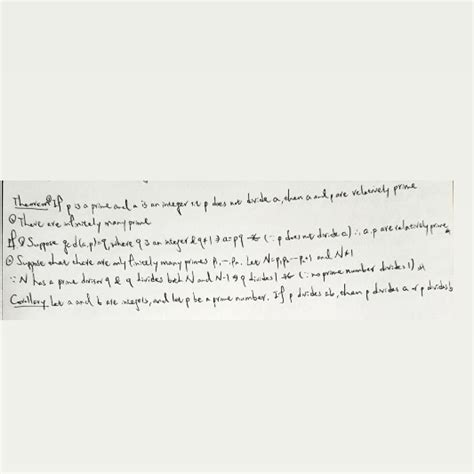 Theorem ① If p is a prime and a is an integer s.t p does not divide a, then a and p are relatively prime
② There are infinitely many prime
pf ① Suppose gcd(a,p)=q, where q is an integer & q≠1 ∃ a=pq ※ (∵ p does not divide a) ∴ a,p are relatively prime
② Suppose that there are only finitely many primes p₁,⋯,pₙ. Let N=p₁p₂⋯pₙ+1 and N≠1
∵ N has a prime divisor q & q divides both N and N-1 ⇒ q divides 1 ※ (∵ no prime number divides 1)
Corollary. Let a and b are integers, and let p be a prime number. If p divides ab, then p divides a or p divides b